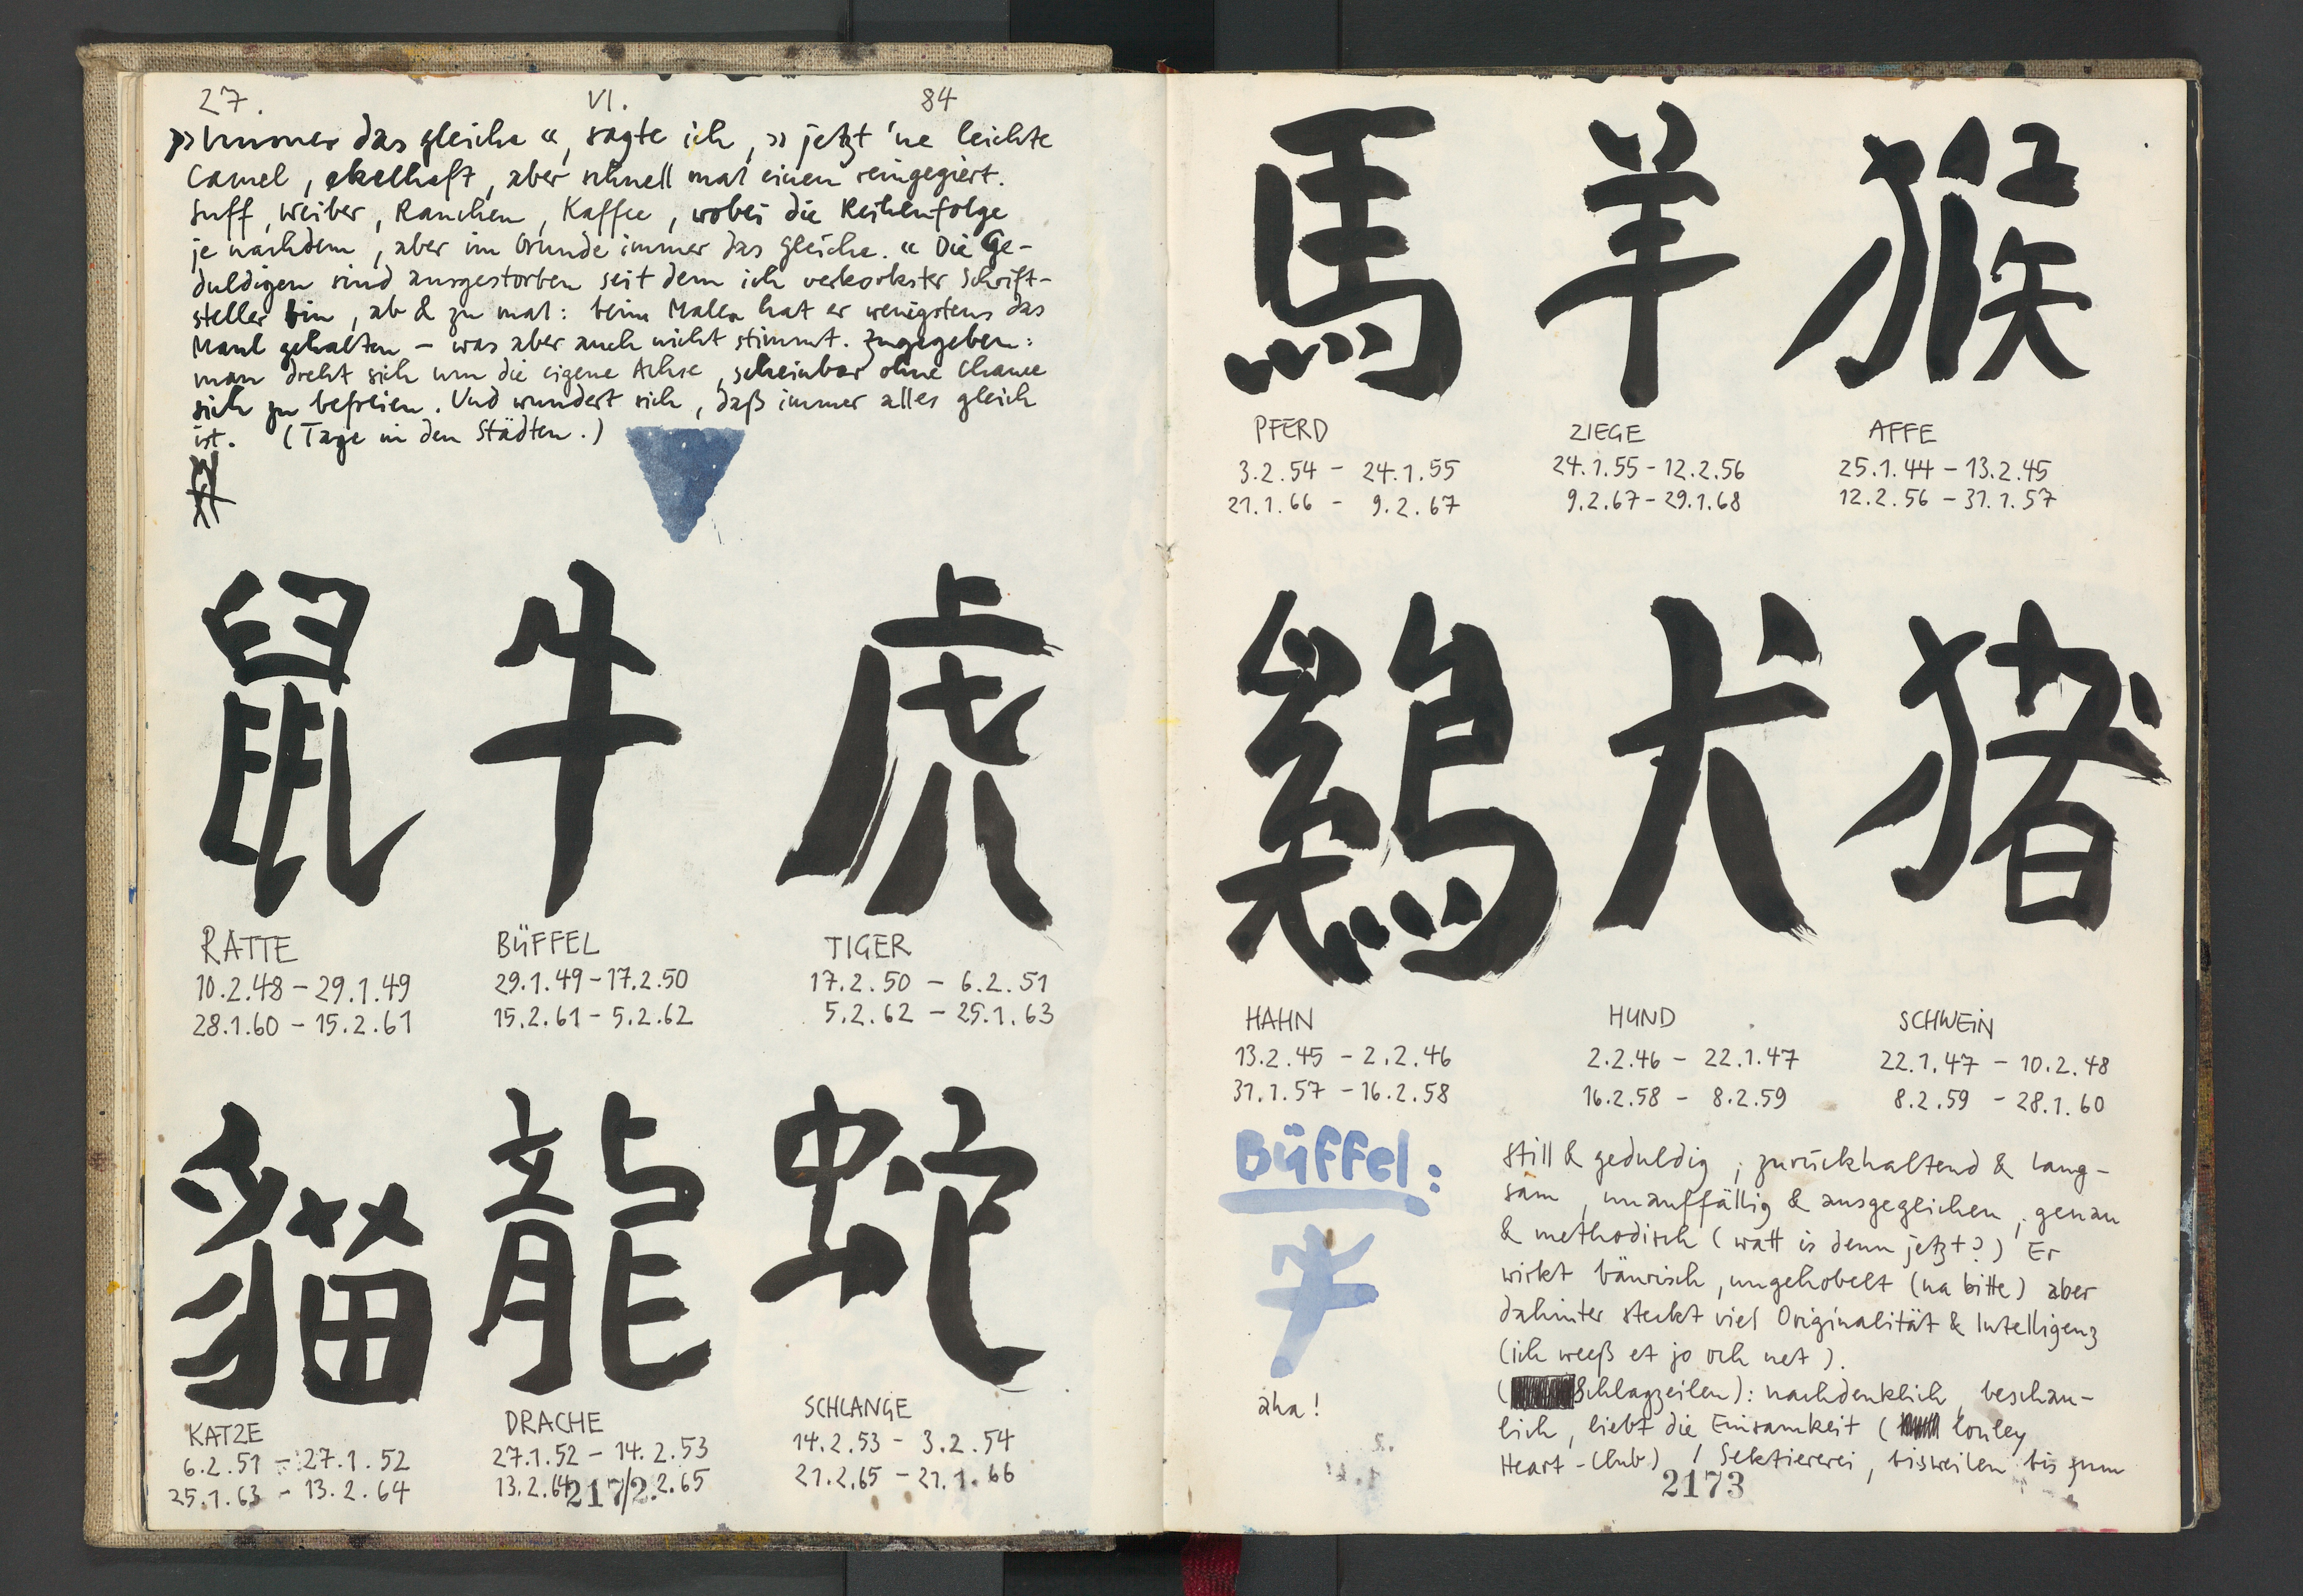 27. VI. 84
»Immer das gleiche«, sagte ich, »jetzt 'ne leichte
Camel, ekelhaft, aber schnell mal einen reingegiert.
Suff, Weiber, Rauchen, Kaffee, wobei die Reihenfolge
je nachdem, aber im Grunde immer das gleiche.« Die Ge-
duldigen sind ausgestorben seit dem ich verkorkster Schrift-
steller bin, ab & zu mal: beim Malen hat er wenigstens das
Maul gehalten – was aber auch nicht stimmt. Zugegeben:
man dreht sich um die eigene Achse, scheinbar ohne Chance
sich zu befreien. Und wundert sich, daß immer alles gleich
ist. (Tage in den Städten.)
鼠 牛 虎
RATTE BÜFFEL TIGER
10.2.48 – 29.1.49 29.1.49 – 17.2.50 17.2.50 – 6.2.51
28.1.60 – 15.2.61 15.2.61 – 5.2.62 5.2.62 – 25.1.63
貓 龍 蛇
KATZE DRACHE SCHLANGE
6.2.51 – 27.1.52 27.1.52 – 14.2.53 14.2.53 – 3.2.54
25.1.63 – 13.2.64 13.2.64 2.2.65 21.2.65 – 21.1.66
2172
馬 羊 猴
PFERD ZIEGE AFFE
3.2.54 – 24.1.55 24.1.55 – 12.2.56 25.1.44 – 13.2.45
21.1.66 – 9.2.67 9.2.67 – 29.1.68 12.2.56 – 31.1.57
鷄 犬 猪
HAHN HUND SCHWEIN
13.2.45 – 2.2.46 2.2.46 – 22.1.47 22.1.47 – 10.2.48
31.1.57 – 16.2.58 16.2.58 – 8.2.59 8.2.59 – 28.1.60
Büffel:
牛
aha!
still & geduldig, zurückhaltend & lang-
sam, unauffällig & ausgeglichen, genau
& methodisch (watt is denn jetzt?) Er
wirkt bäurisch, ungehobelt (na bitte) aber
dahinter steckt viel Originalität & Intelligenz
(ich weeß et jo och net).
(Schlagzeilen): nachdenklich, beschau-
lich, liebt die Einsamkeit (lonley
Heart-Club) / Sektiererei, bisweilen bis zum
2173